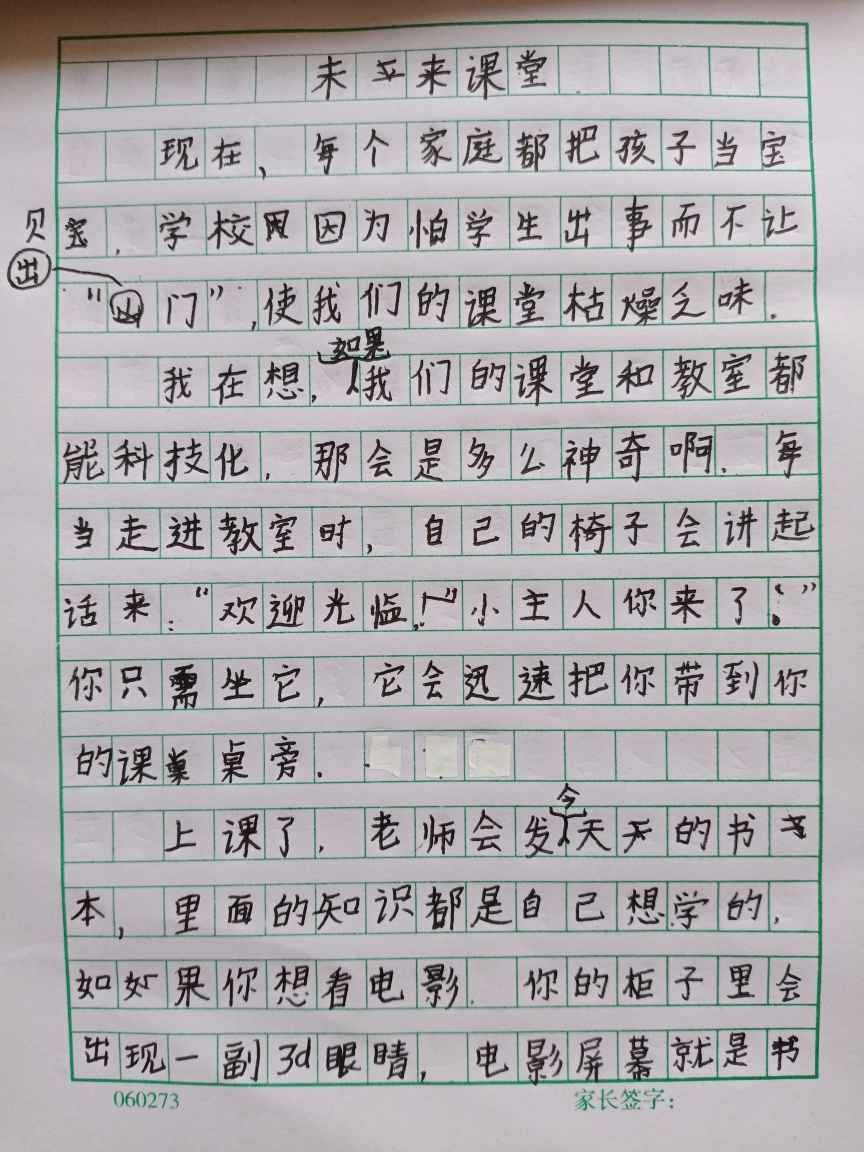 未来课堂
现在，每个家庭都把孩子当宝
贝，学校因为怕学生出事而不让
“出门”，使我们的课堂枯燥乏味．
我在想，如果我们的课堂和教室都
能科技化，那会是多么神奇啊．每
当走进教室时，自己的椅子会讲起
话来：“欢迎光临！小主人你来了！”
你只需坐它，它会迅速把你带到你
的课桌旁．
上课了．老师会发今天的书
本，里面的知识都是自己想学的，
如果你想看电影．你的柜子里会
出现一副3d眼睛，电影屏幕就是书
060273 家长签字：